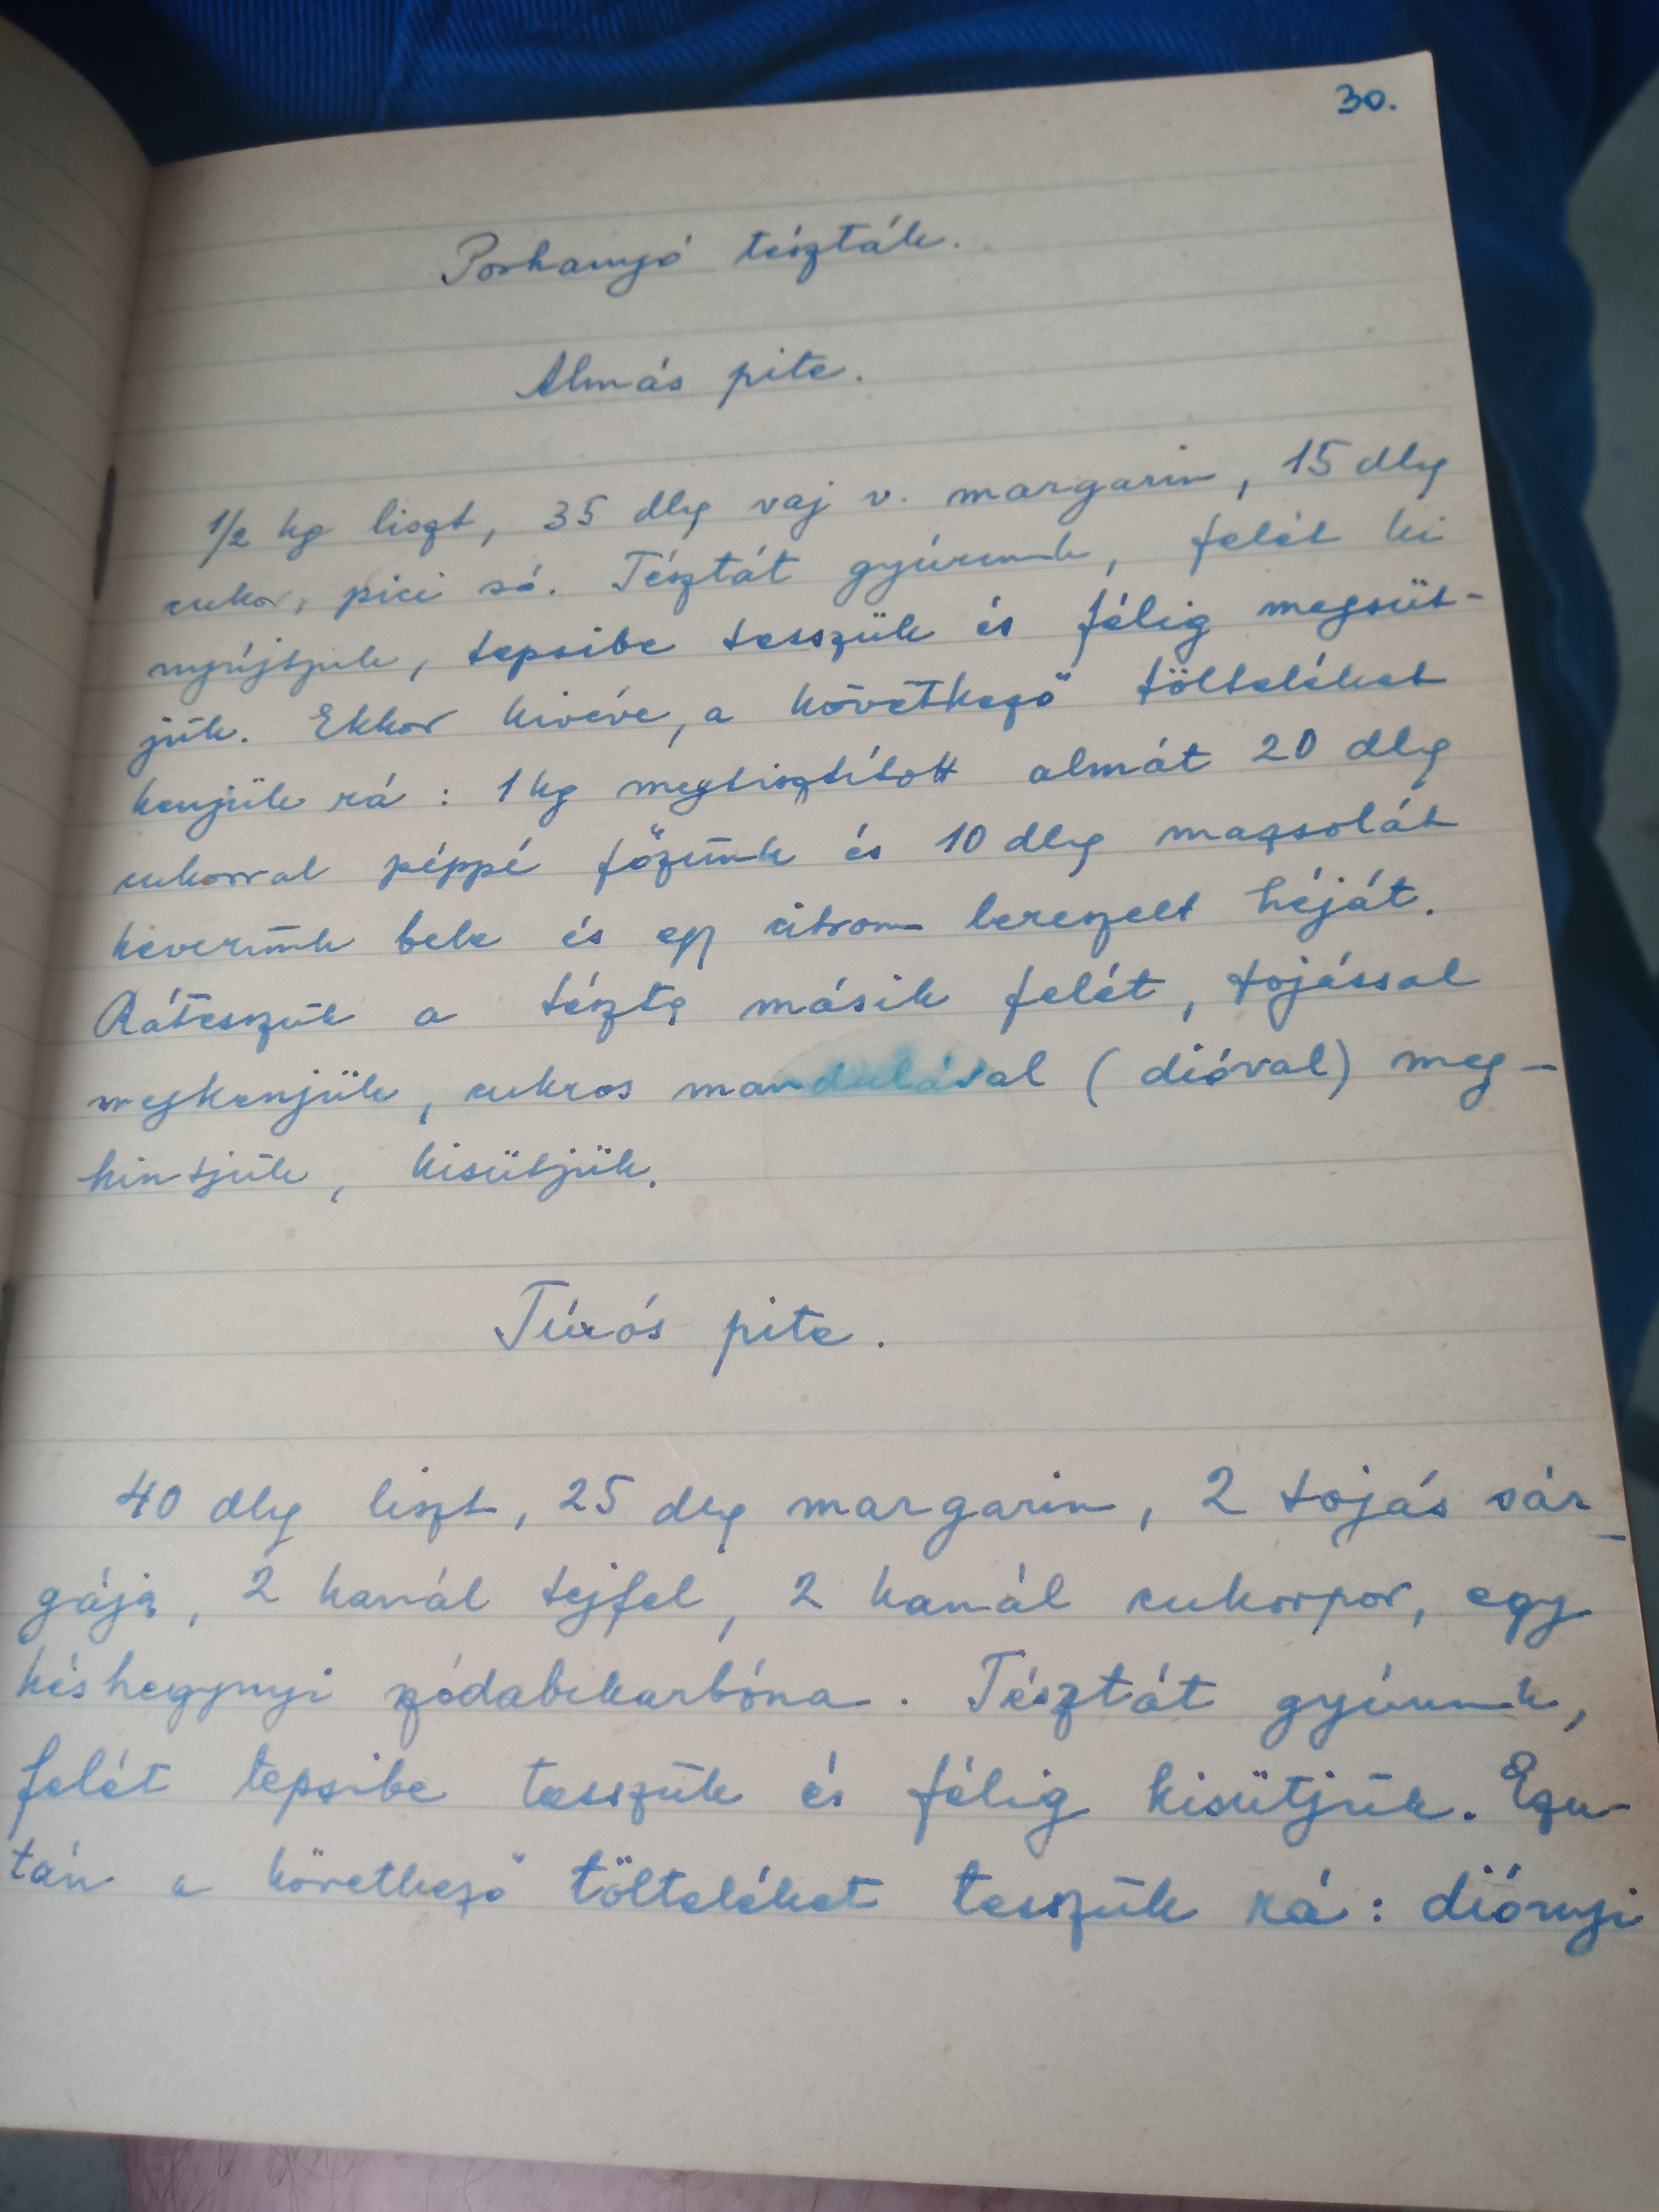 30.
Porhanyó tészták.
Almás pite.
1/2 kg liszt, 35 dkg vaj v. margarin, 15 dkg
cukor, pici só. Tésztát gyúrunk, felét ki
nyújtjuk, tepsibe tesszük és félig megsüt-
jük. Ekkor kivéve, a következő tölteléket
kenjük rá : 1 kg megtisztított almát 20 dkg
cukorral péppé főzünk és 10 dkg mazsolát
keverünk bele és egy citrom lereszelt héját.
Ráteszük a tészta másik felét, tojással
megkenjük, cukros mandulával ( dióval) meg-
hintjük, kisütjük.
Túrós pite.
40 dkg liszt, 25 dkg margarin, 2 tojás sár-
gája, 2 kanál tejfel, 2 kanál cukorpor, egy
késhegynyi szódabikarbóna. Tésztát gyúrunk,
felét tepsibe tesszük és félig kisütjük. Ezu-
tán a következő tölteléket tesszük rá : diónyi